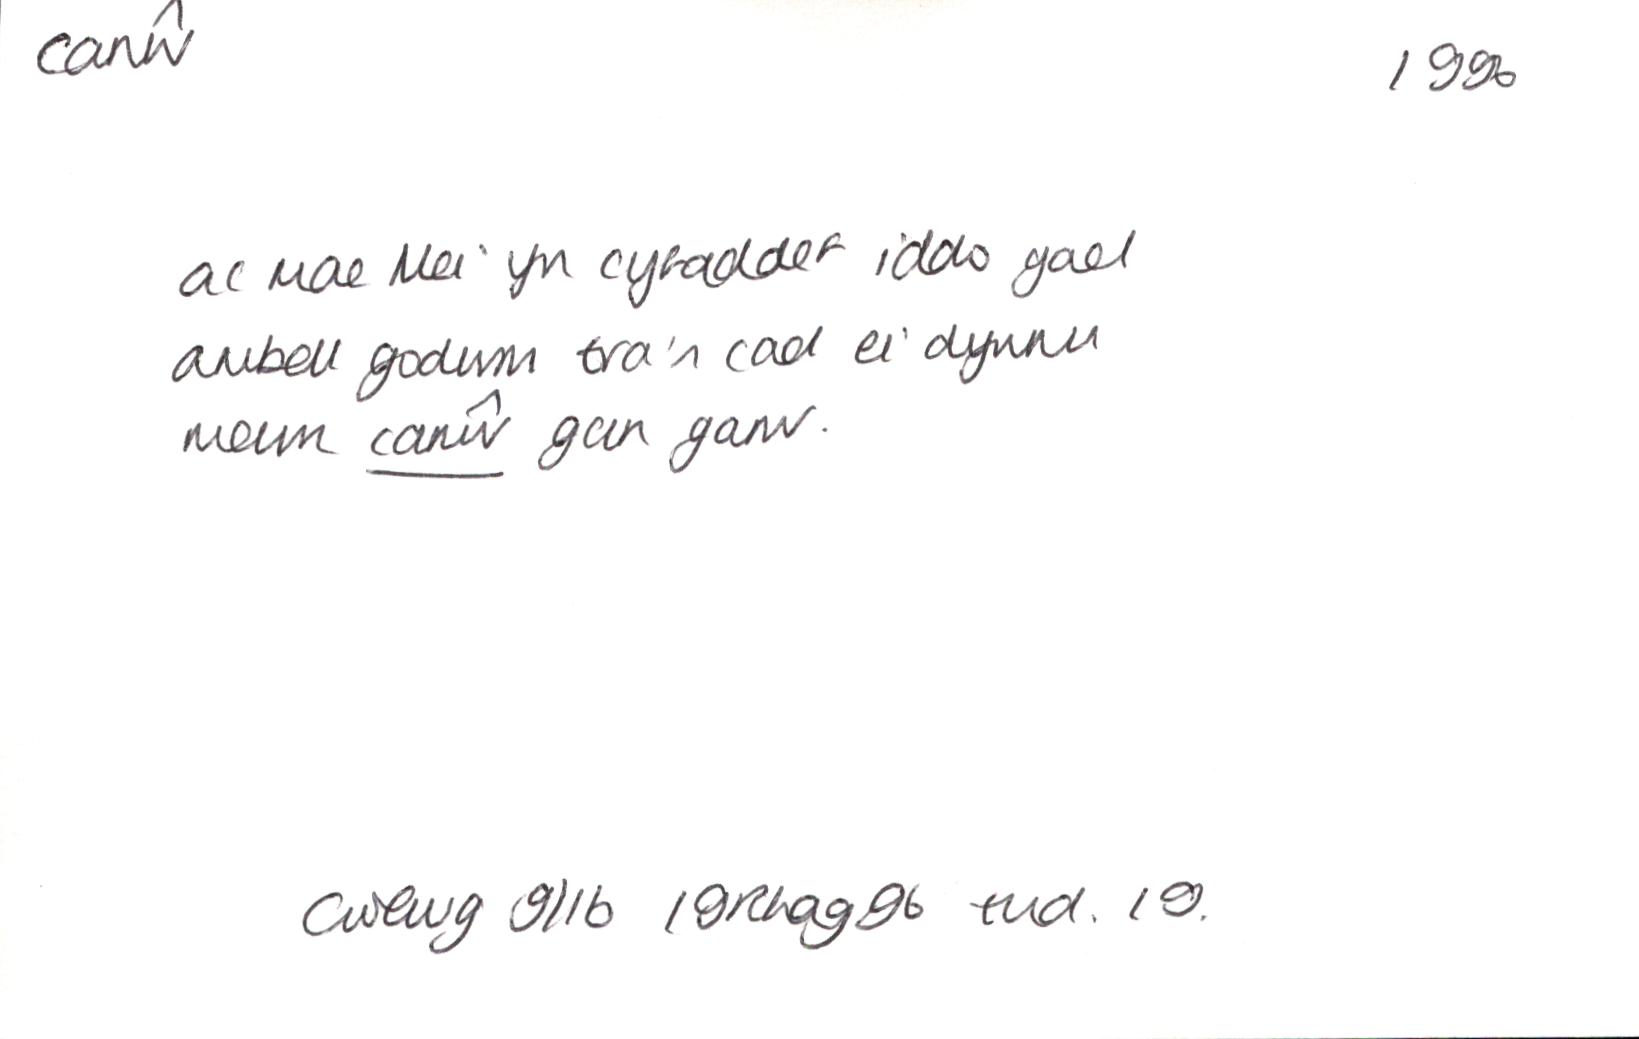 canŵ
1996
ac mae Mei yn cyfaddef iddo gael
ambell godwm tra'n cael ei dynnu
mewn canŵ gan garw.
Golwg 9/16 19Rhag96 tud. 19.